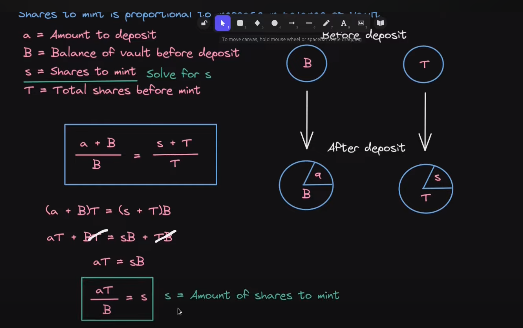 Shares to mint is proportional to increase in balance of vault
a = Amount to deposit
B = Balance of vault before deposit
s = Shares to mint Solve for s
T = Total shares before mint
To move canvas, hold mouse wheel or spacebar
Before deposit
B
T
a + B
B
=
s + T
T
After deposit
a
B
s
T
(a + B)T = (s + T)B
aT + BT = sB + TB
aT = sB
aT
B
= s
s = Amount of shares to mint